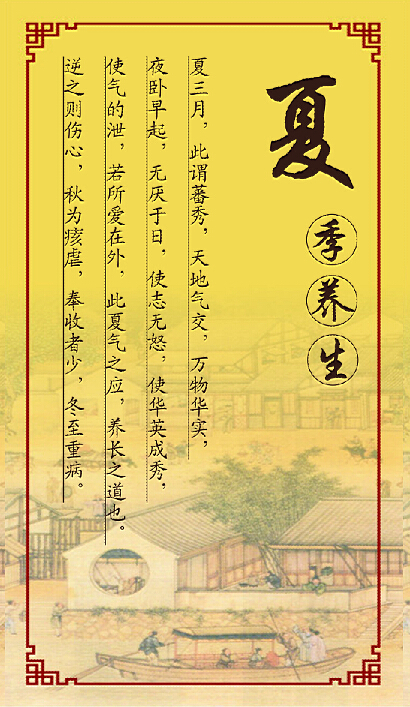 夏
季养生
夏三月，此谓蕃秀，天地气交，万物华实，
夜卧早起，无厌于日，使志无怒，使华英成秀，
使气的泄，若所爱在外，此夏气之应，养长之道也。
逆之则伤心，秋为痎虐，奉收者少，冬至重病。